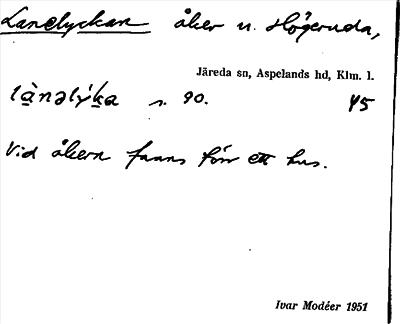 Lanelyckan åker n. Högeruda,
Järeda sn, Aspelands hd, Klm. l.
là̱nəlýk̠a s. 90. 45
Vid åkern fanns förr ett hus.
Ivar Modéer 1951